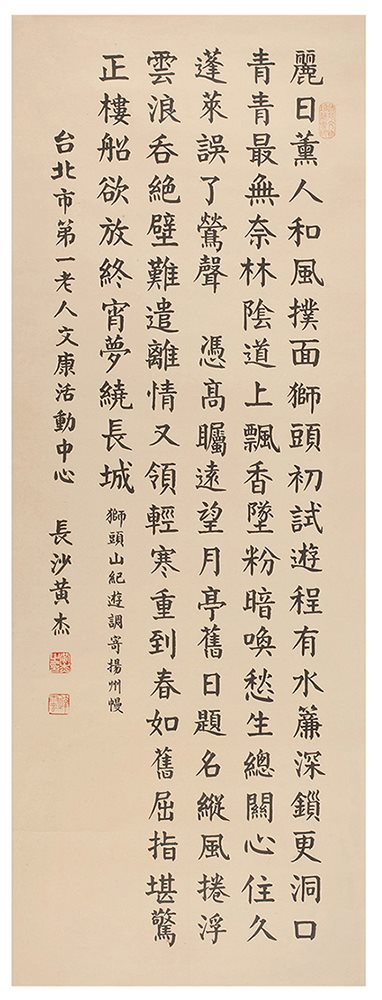 麗日薰人和風撲面獅頭初試遊程有水簾深鎖更洞口
青青最無奈林陰道上飄香墜粉暗喚愁生總關心住久
蓬萊誤了鶯聲　憑高矚遠望月亭舊日題名縱風捲浮
雲浪吞絕壁難遣離情又領輕寒重到春如舊屈指堪驚
正樓船欲放終宵夢繞長城
獅頭山紀遊調寄揚州慢
台北市第一老人文康活動中心　長沙黃杰